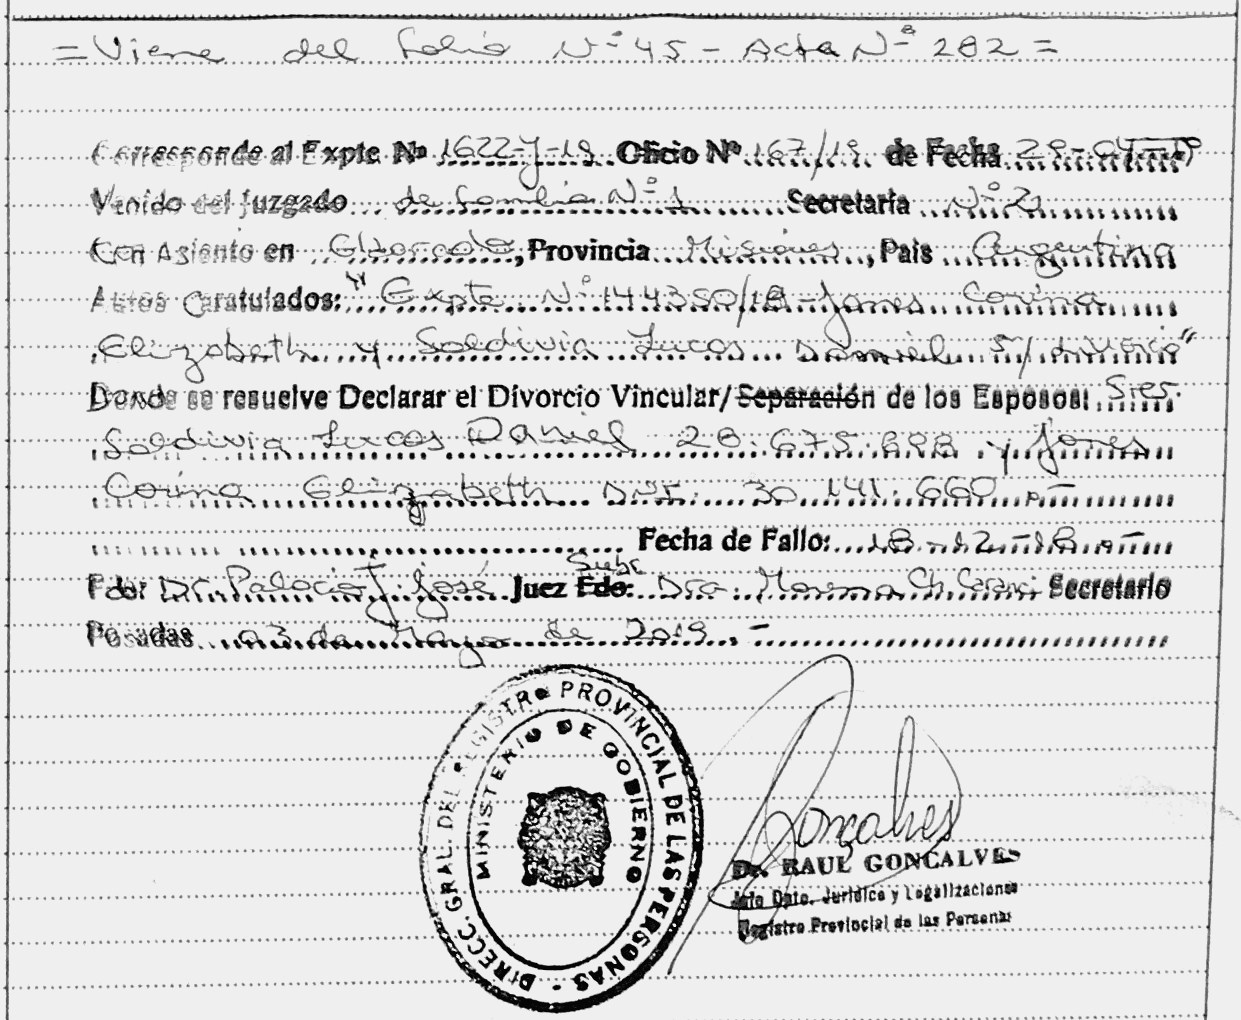 = Viene del folio Nº 45 - Acta Nº 282 =
Corresponde al Expte Nº 1622-J-19 Oficio Nº 167/19 de Fecha 29-04-19
Venido del Juzgado de familia Nº 1 Secretaría Nº 2
Con Asiento en Eldorado, Provincia Misiones, País Argentina
Autos Caratulados: "Expte. Nº 144350/18 - Jones Corina
Elizabeth y Soldivia Lucas Daniel S/ divorcio"
Donde se resuelve Declarar el Divorcio Vincular/Separación de los Esposos: Sres.
Soldivia Lucas Daniel 28.675.698 y Jones
Corina Elizabeth D.N.I. 30.141.660.-
Fecha de Fallo: 18-12-18.-
Fdo: Dr. Palacio J. José Juez Subr. Fdo: Dra. Morena Ch. Secretario
Posadas 03 de Mayo de 2019.-
DIRECC. GRAL. DEL REGISTRO PROVINCIAL DE LAS PERSONAS
MINISTERIO DE GOBIERNO
Gonçalves
Dr. RAUL GONCALVES
Jefe Dpto. Jurídico y Legalizaciones
Registro Provincial de las Personas